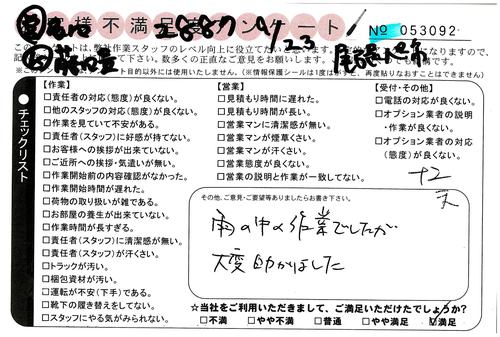 様不満足度アンケート
No 053092
2887 9/23
このたびは、弊社作業スタッフのレベル向上に役立てたい
して下さい。数多くの正直なご意見をお願いします。
ト目的以外には使用いたしません。(※情報保護シールは1度はがすと、再度貼りなおすことはできません)
チェックリスト
【作業】
□責任者の対応(態度)が良くない。
□他のスタッフの対応(態度)が良くない。
□作業を見ていて不安がある。
□責任者(スタッフ)に好感が持てない。
□お客様への挨拶が出来ていない。
□ご近所への挨拶・気遣いが無い。
□作業開始前の内容確認がなかった。
□作業開始時間が遅れた。
□荷物の取り扱いが雑である。
□お部屋の養生が出来ていない。
□作業時間が長すぎる。
□責任者(スタッフ)に清潔感が無い。
□責任者(スタッフ)が汗くさい。
□トラックが汚い。
□梱包資材が汚い。
□運転が不安(下手)である。
□靴下の履き替えをしてない。
□スタッフにやる気がみられない。
【営業】
□見積もり時間に遅れた。
□見積もり時間が長い。
□営業マンに清潔感が無い。
□営業マンが煙草くさい。
□営業マンが汗くさい。
□営業態度が良くない。
□営業の説明と作業が一致してない。
【受付・その他】
□電話の対応が良くない。
□オプション業者の説明
・作業が良くない。
□オプション業者の対応
(態度)が良くない。
その他、ご意見・ご要望等ありましたらお書き下さい。
雨の中の作業でしたが
大変助かりました
☆当社をご利用いただきまして、ご満足いただけたでしょうか?
□不満 □やや不満 □普通 □やや満足 ☑満足